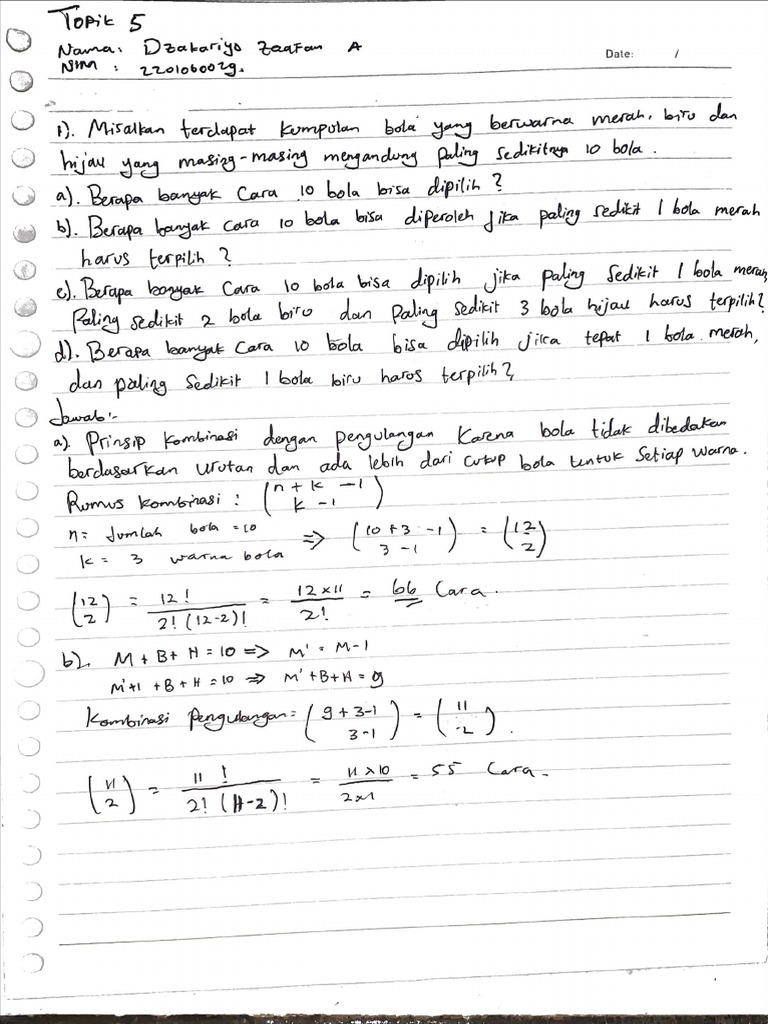 Topik 5
Nama: Dzakariya Zaafan A
Date: /
NIM : 2201060029.
1). Misalkan terdapat kumpulan bola yang berwarna merah, biru dan
hijau yang masing-masing mengandung paling sedikitnya 10 bola.
a). Berapa banyak cara 10 bola bisa dipilih?
b). Berapa banyak cara 10 bola bisa diperoleh jika paling sedikit 1 bola merah
harus terpilih?
c). Berapa banyak cara 10 bola bisa dipilih jika paling sedikit 1 bola merah,
Paling sedikit 2 bola biru dan Paling sedikit 3 bola hijau harus terpilih?
d). Berapa banyak cara 10 bola bisa dipilih jika tepat 1 bola merah,
dan paling sedikit 1 bola biru harus terpilih?
Jawab:-
a). Prinsip kombinasi dengan pengulangan karena bola tidak dibedakan
berdasarkan urutan dan ada lebih dari cukup bola untuk setiap warna.
Rumus kombinasi : (n + k - 1 / k - 1)
n = Jumlah bola = 10
k = 3 warna bola => (10 + 3 - 1 / 3 - 1) = (12 / 2)
(12 / 2) = 12! / 2! (12-2)! = 12 x 11 / 2! = 66 Cara.
b). M + B + H = 10 => M' = M-1
M'+1 + B + H = 10 => M' + B + H = 9
Kombinasi Pengulangan = (9 + 3-1 / 3-1) = (11 / 2).
(11 / 2) = 11! / 2! (11-2)! = 11 x 10 / 2x1 = 55 Cara.